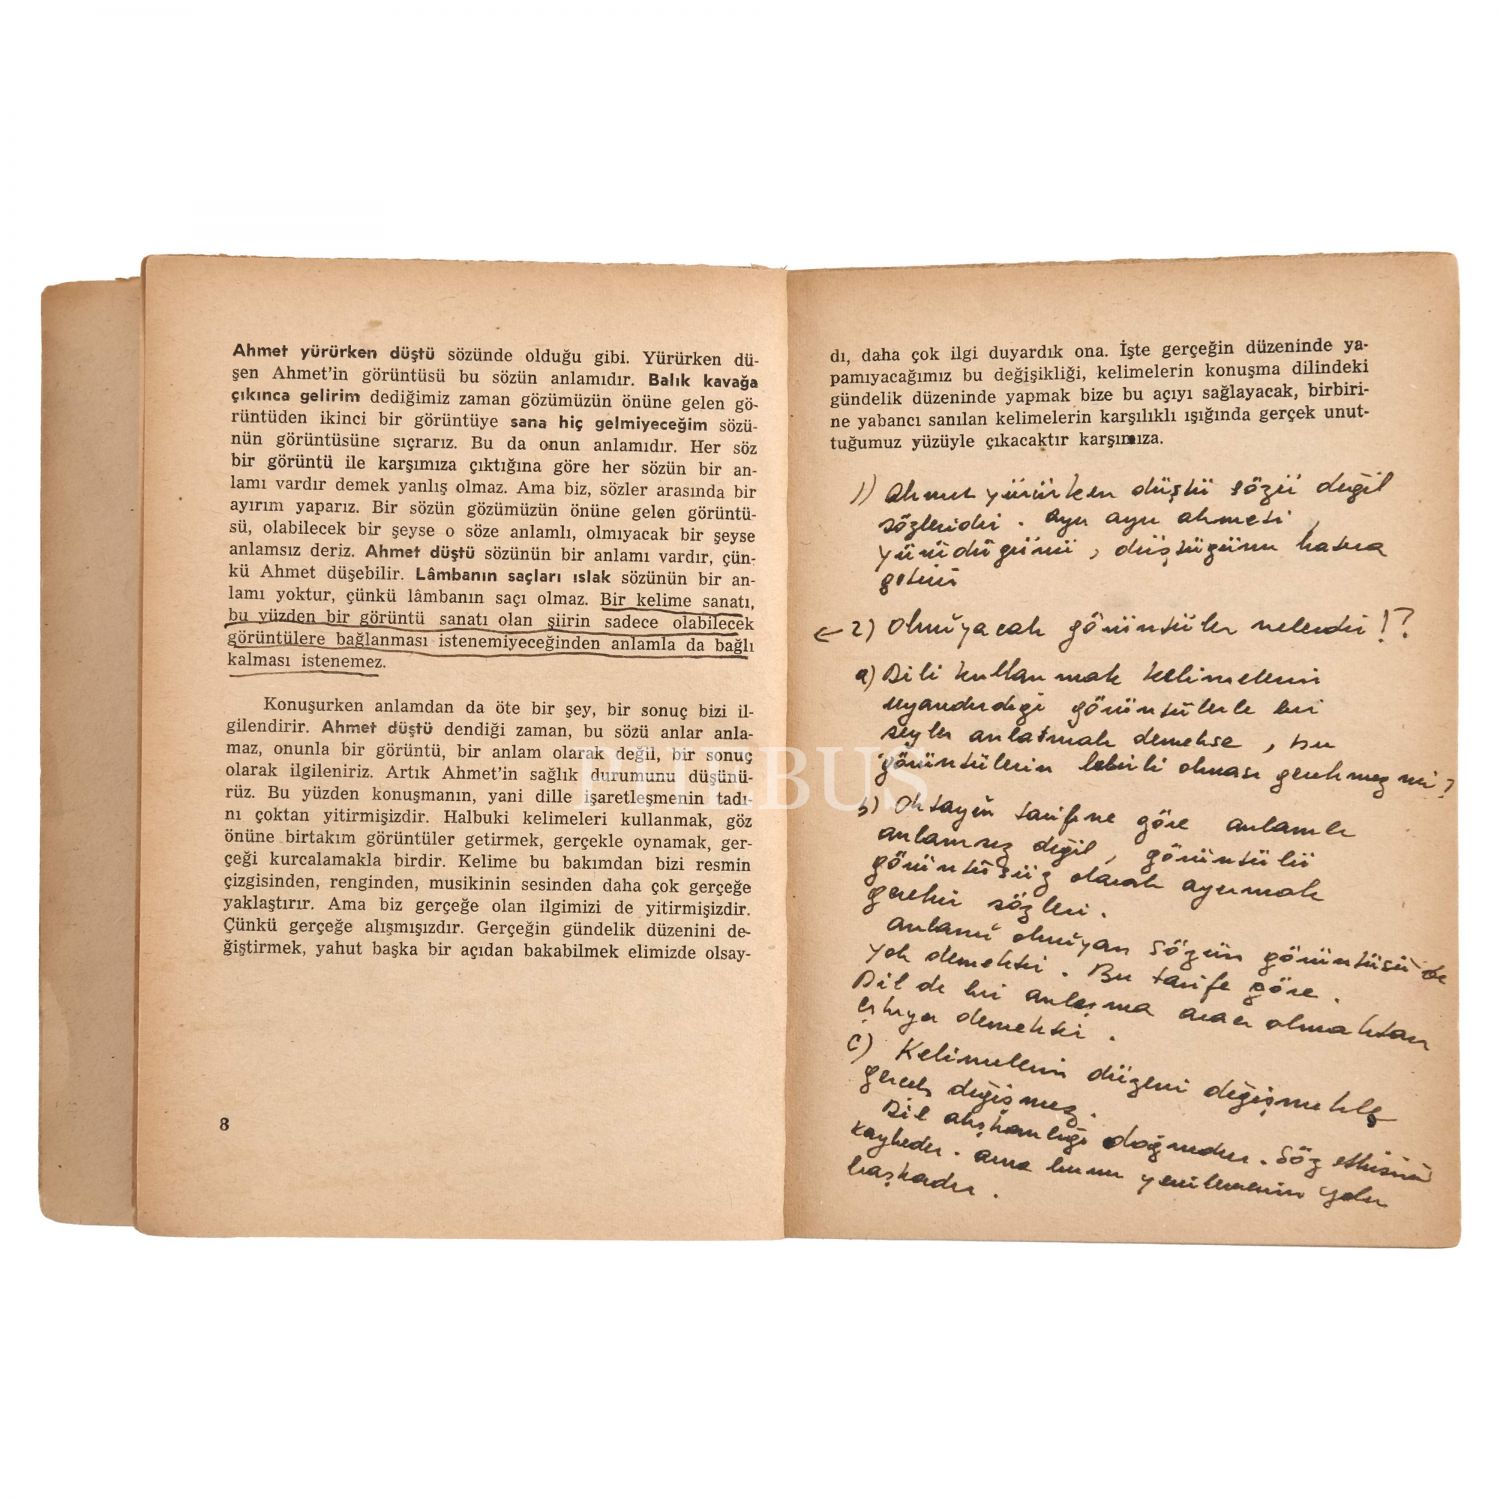 Ahmet yürürken düştü sözünde olduğu gibi. Yürürken dü-
şen Ahmet'in görüntüsü bu sözün anlamıdır. Balık kavağa
çıkınca gelirim dediğimiz zaman gözümüzün önüne gelen gö-
rüntüden ikinci bir görüntüye sana hiç gelmiyeceğim sözü-
nün görüntüsüne sıçrarız. Bu da onun anlamıdır. Her söz
bir görüntü ile karşımıza çıktığına göre her sözün bir an-
lamı vardır demek yanlış olmaz. Ama biz, sözler arasında bir
ayırım yaparız. Bir sözün gözümüzün önüne gelen görüntü-
sü, olabilecek bir şeyse o söze anlamlı, olmıyacak bir şeyse
anlamsız deriz. Ahmet düştü sözünün bir anlamı vardır, çün-
kü Ahmet düşebilir. Lâmbanın saçları ıslak sözünün bir an-
lamı yoktur, çünkü lâmbanın saçı olmaz. Bir kelime sanatı,
bu yüzden bir görüntü sanatı olan şiirin sadece olabilecek
görüntülere bağlanması istenemiyeceğinden anlamla da bağlı
kalması istenemez.
Konuşurken anlamdan da öte bir şey, bir sonuç bizi il-
gilendirir. Ahmet düştü dendiği zaman, bu sözü anlar anla-
maz, onunla bir görüntü, bir anlam olarak değil, bir sonuç
olarak ilgileniriz. Artık Ahmet'in sağlık durumunu düşünü-
rüz. Bu yüzden konuşmanın, yani dille işaretleşmenin tadı-
nı çoktan yitirmişizdir. Halbuki kelimeleri kullanmak, göz
önüne birtakım görüntüler getirmek, gerçekle oynamak, ger-
çeği kurcalamakla birdir. Kelime bu bakımdan bizi resmin
çizgisinden, renginden, musikinin sesinden daha çok gerçeğe
yaklaştırır. Ama biz gerçeğe olan ilgimizi de yitirmişizdir.
Çünkü gerçeğe alışmışızdır. Gerçeğin gündelik düzenini de-
ğiştirmek, yahut başka bir açıdan bakabilmek elimizde olsay-
8
dı, daha çok ilgi duyardık ona. İşte gerçeğin düzeninde ya-
pamıyacağımız bu değişikliği, kelimelerin konuşma dilindeki
gündelik düzeninde yapmak bize bu açıyı sağlayacak, birbiri-
ne yabancı sanılan kelimelerin karşılıklı ışığında gerçek unut-
tuğumuz yüzüyle çıkacaktır karşımıza.
1) Ahmet yürürken düştü sözü değil
sözleridir. Ayrı ayrı ahmeti,
yürüdüğünü, düştüğünü hatıra
getirir
2) Olmıyacak görüntüler nelerdir!?
a) Dili kullanmak kelimelerin
uyandırdığı görüntülerle bir
şeyler anlatmak demekse, bu
görüntülerin belirli olması gerekmez mi?
b) Oktayın tarifine göre anlamlı
anlamsız değil, görüntülü
görüntüsüz olarak ayırmak
gerekir sözleri.
anlamı olmıyan sözün görüntüsü de
yok demektir. Bu tarife göre.
Dil de bir anlaşma aracı olmaktan
çıkıyor demektir.
c) Kelimelerin düzeni değişmekle
gerçek değişmez.
Dil alışkanlığı doğrudur. Söz etkisini
kaybeder. ama bunu yenilemenin yolu
başkadır.
PHEBUS